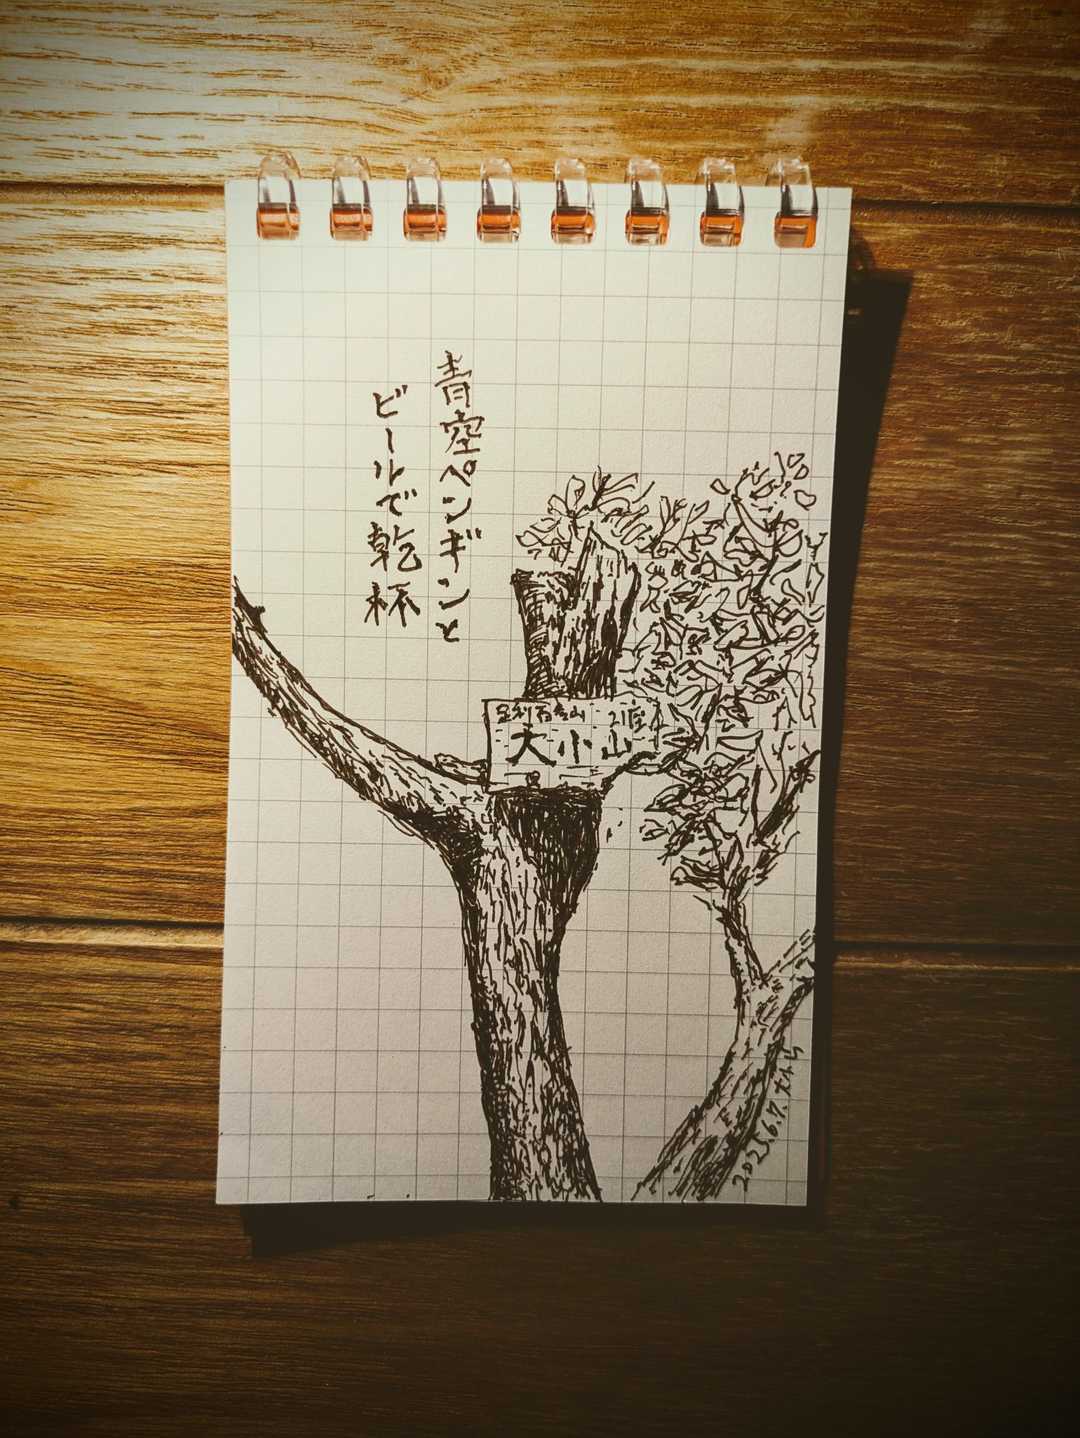 青空ペンギンと
ビールで乾杯
足利百名山 21座
大小山
2025.6.7. 大小山